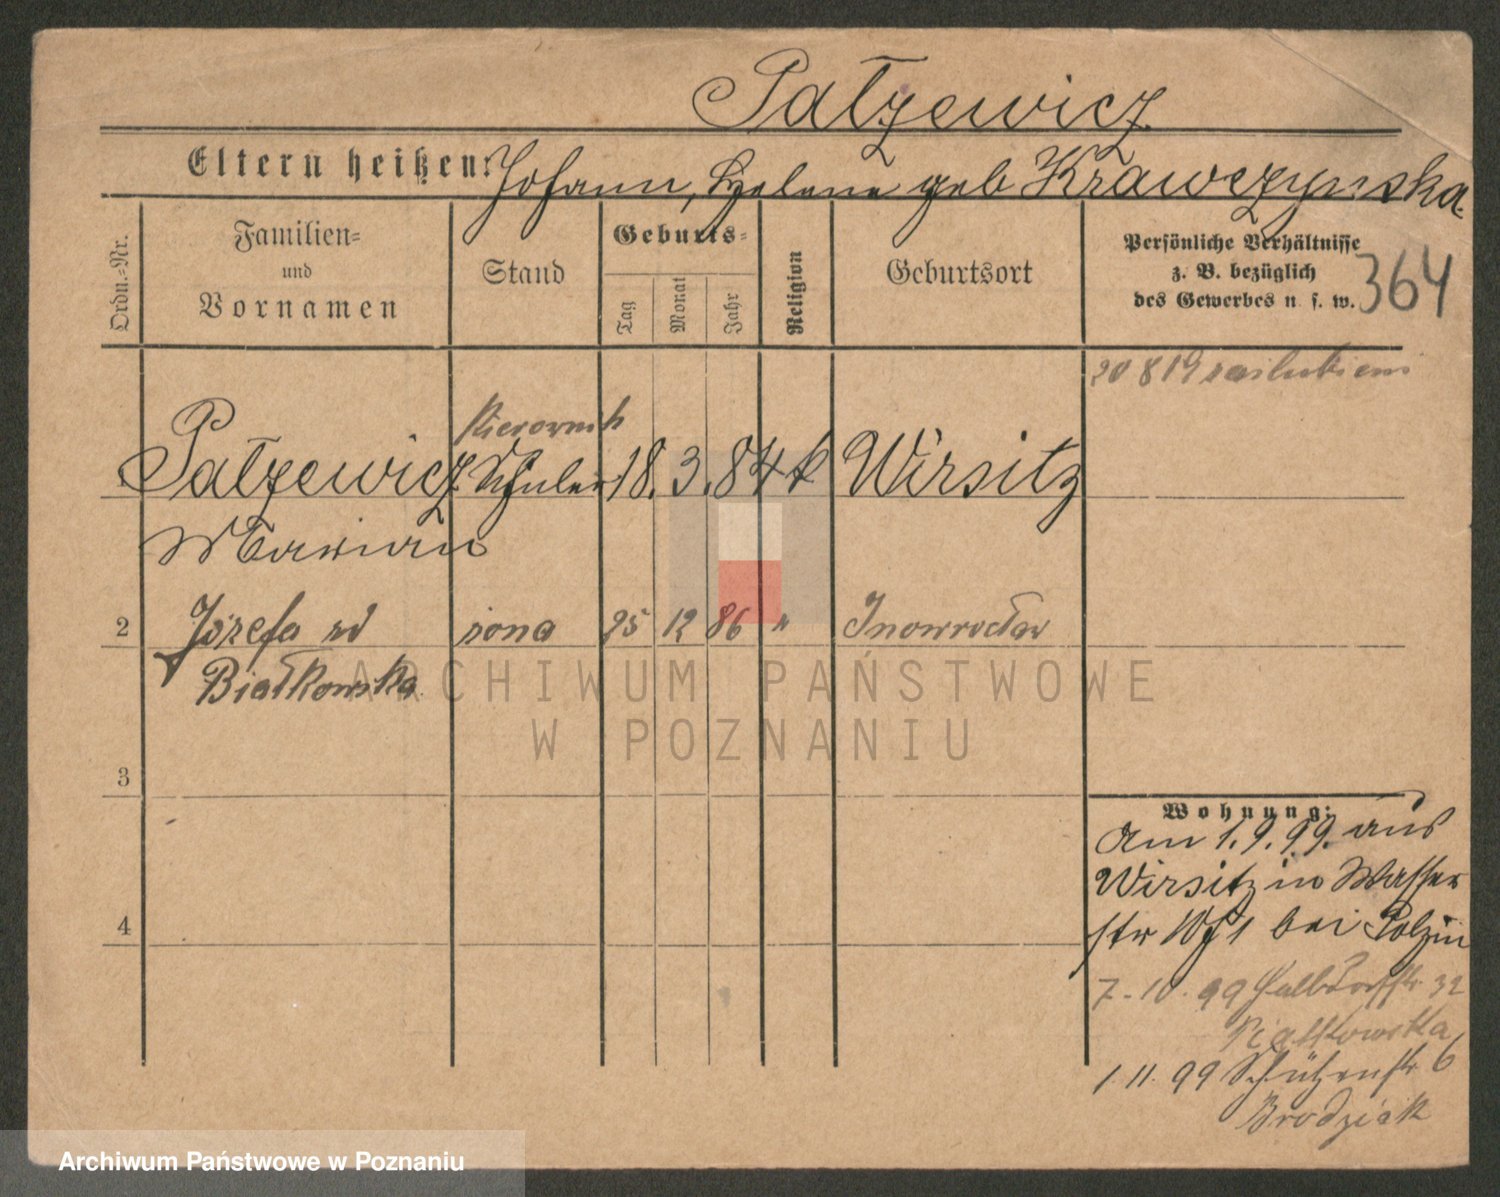 Patzewicz
Eltern heißen: Johann, Helene geb Krawczynska.
Ordn.-Nr.
Familien-
und
Vornamen
Stand
Geburts-
Tag
Monat
Jahr
Religion
Geburtsort
Persönliche Verhältnisse
z. B. bezüglich
des Gewerbes u. s. w.
364
20 8 19
Kierownik
Patzewicz Schüler 18. 3. 84 k Wirsitz
Marian
2 Józefa żona 25 12 86 " Inowrocław
Białkowska
3
4
Wohnung:
Am 1.9.99. aus
Wirsitz in Wasser
str bei Polzin
7.10.99 Halbdorfstr 32
Piatkowska
1.11.99 Schützenstr 6
Brodziak
ARCHIWUM PAŃSTWOWE
W POZNANIU
Archiwum Państwowe w Poznaniu